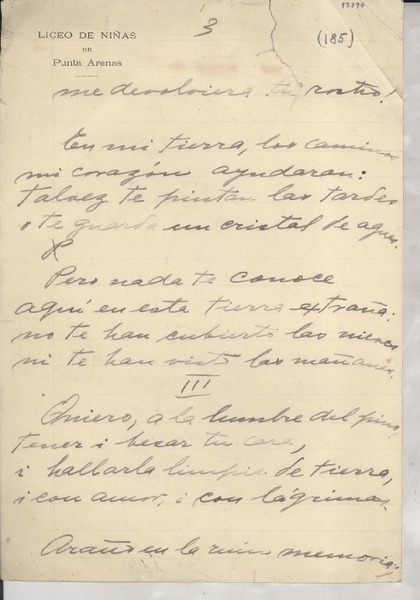 13894
LICEO DE NIÑAS
DE
Punta Arenas
3
(185)
me devolviera tu rostro!
En mi tierra, los caminos
mi corazón ayudaran:
talvez te pintan las tardes
o te guarda un cristal de aguas.
Pero nada te conoce
aquí en esta tierra extraña:
no te han cubierto las nieves
ni te han visto las mañanas.
III
Quiero, a la lumbre del pino,
tener i besar tu cara,
i hallarla limpia de tierra,
i con amor, i con lágrimas.
Araño en la ruin memoria;